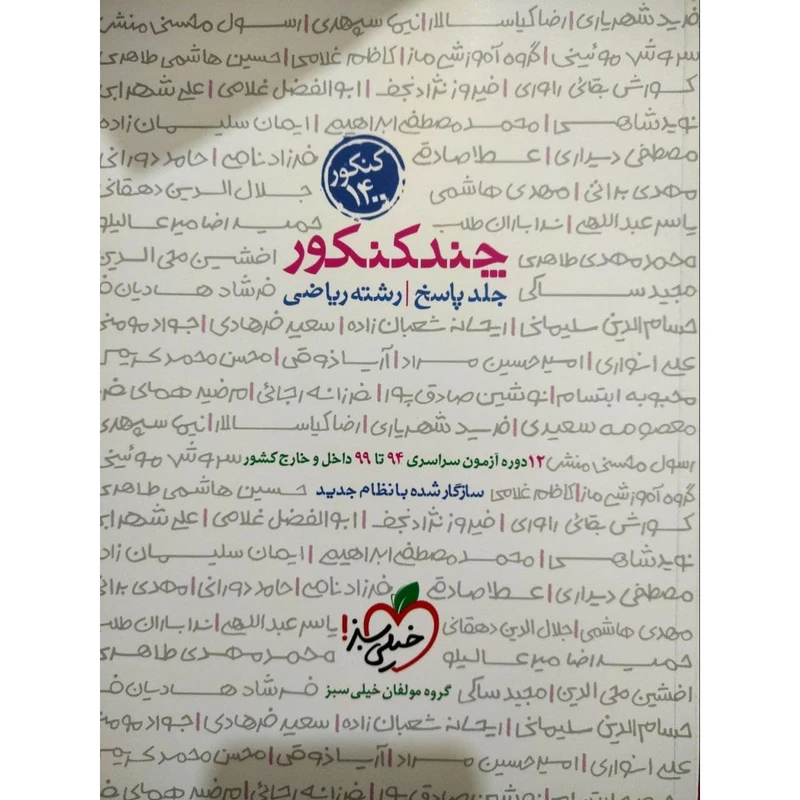 فرید شهریاری | رضا کیاسالار | نیما سپهری | رسول محسنی منش
سروش موئینی | گروه آموزشی ماز | کاظم غلامی | حسین هاشمی طاهری
کورش بقائی راوری | فیروز نژادنجف | ابوالفضل غلامی | علی شهرابی
نوید شاهی | محمد مصطفی ابراهیمی | ایمان سلیمان زاده
مصطفی دیداری | عطا صادقی کنکور ۱۴۰۰ فرزاد نامی | حامد دورانی
مهدی براتی | مهدی هاشمی جلال الدین دهقانی
یاسر عبداللهی | ندا باران طلب حمیدرضا میرعالیلو
محمدمهدی طاهری چند کنکور افشین محی الدین
مجید ساکی جلد پاسخ | رشته ریاضی فرشاد هادیان ف
حسام الدین سلیمانی | ریحانه شعبان زاده | سعید فرهادی | جواد مومن
علی انواری | امیرحسین مراد | آریا ذوقی | محسن محمدکریمی
محبوبه ابتسام | نوشین صادق پور | فرزانه رجائی | مرضیه همای فر
معصومه سعیدی | فرید شهریاری | رضا کیاسالار | نیما سپهری
رسول محسنی منش ۱۲ دوره آزمون سراسری ۹۴ تا ۹۹ داخل و خارج کشور سروش موئینی
گروه آموزشی ماز | کاظم غلامی سازگار شده با نظام جدید حسین هاشمی طاهری
کورش بقائی راوری | فیروز نژادنجف | ابوالفضل غلامی | علی شهرابی
نوید شاهی | محمد مصطفی ابراهیمی | ایمان سلیمان زاد
مصطفی دیداری | عطا صادقی فرزاد نامی | حامد دورانی | مهدی براتی
مهدی هاشمی | جلال الدین دهقانی خیلی سبز! یاسر عبداللهی | ندا باران طلب
حمیدرضا میرعالیلو محمدمهدی طاهری
افشین محی الدین | مجید ساکی گروه مولفان خیلی سبز فرشاد هادیان ف
حسام الدین سلیمانی | ریحانه شعبان زاده | سعید فرهادی | جواد مومن
علی انواری | امیرحسین مراد | آریا ذوقی | محسن محمدکریمی
محبوبه ابتسام | نوشین صادق پور | فرزانه رجائی | مرضیه همای فر